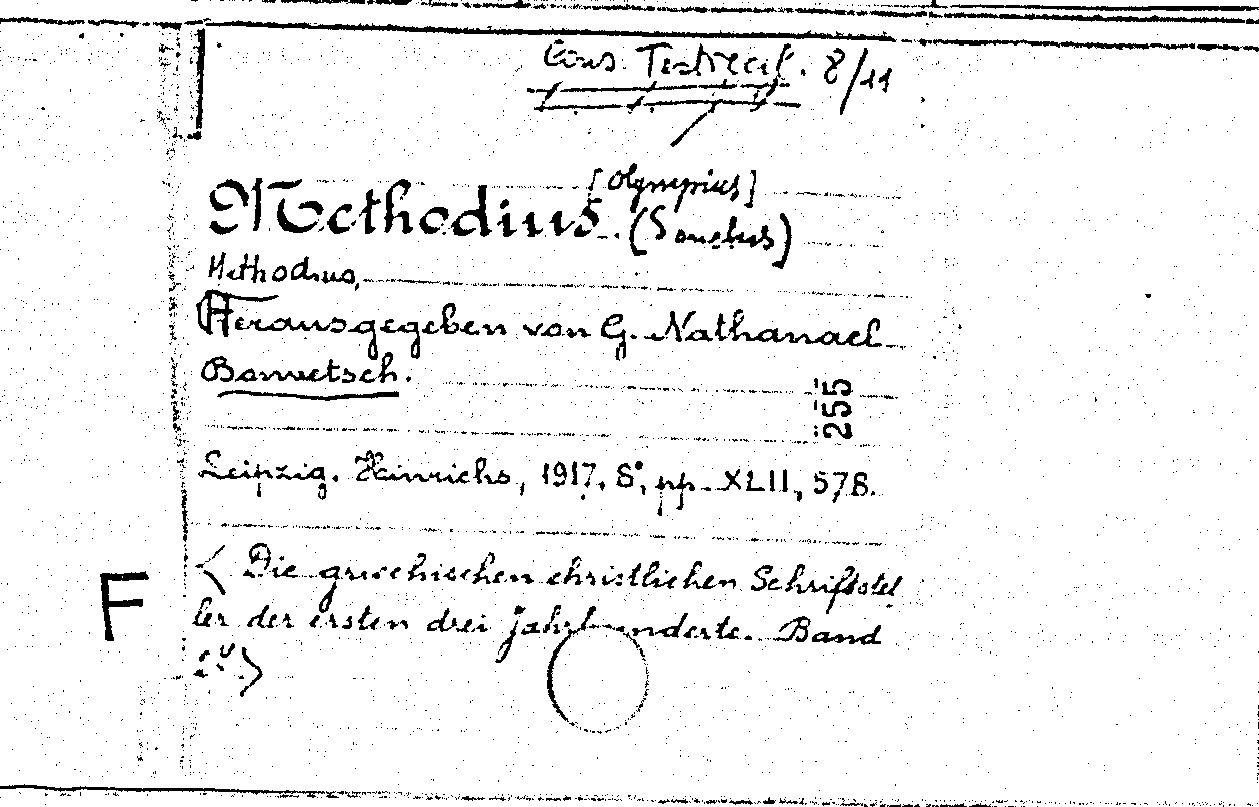 Cons. 8/11
[Olympius]
Methodius. (Sanctus)
Methodius,
Herausgegeben von G. Nathanael
Bonwetsch.
255
Leipzig. Hinrichs, 1917. 8°, pp. XLII, 578.
< Die griechischen christlichen Schriftstel
F
ler der ersten drei Jahrhunderte. Band